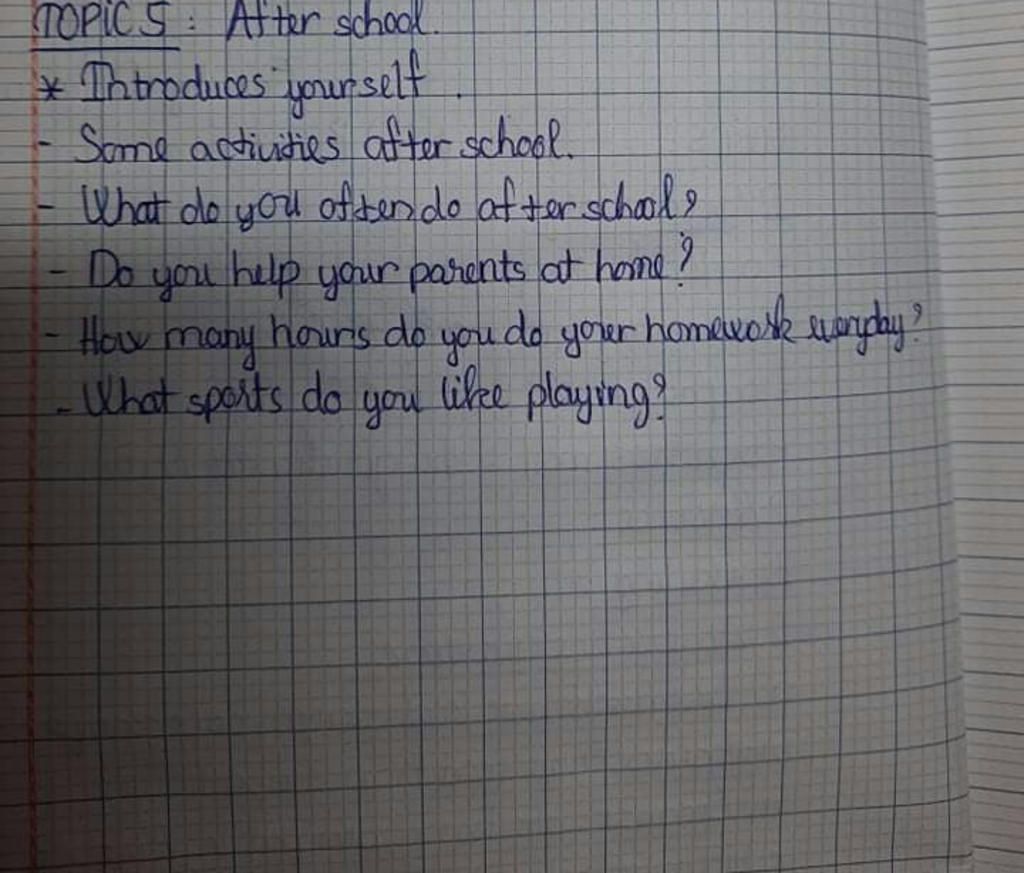 TOPIC 5 : After school.
* Introduces yourself.
- Some activities after school.
- What do you often do after school?
- Do you help your parents at home?
- How many hours do you do your homework everyday?
- What sports do you like playing?